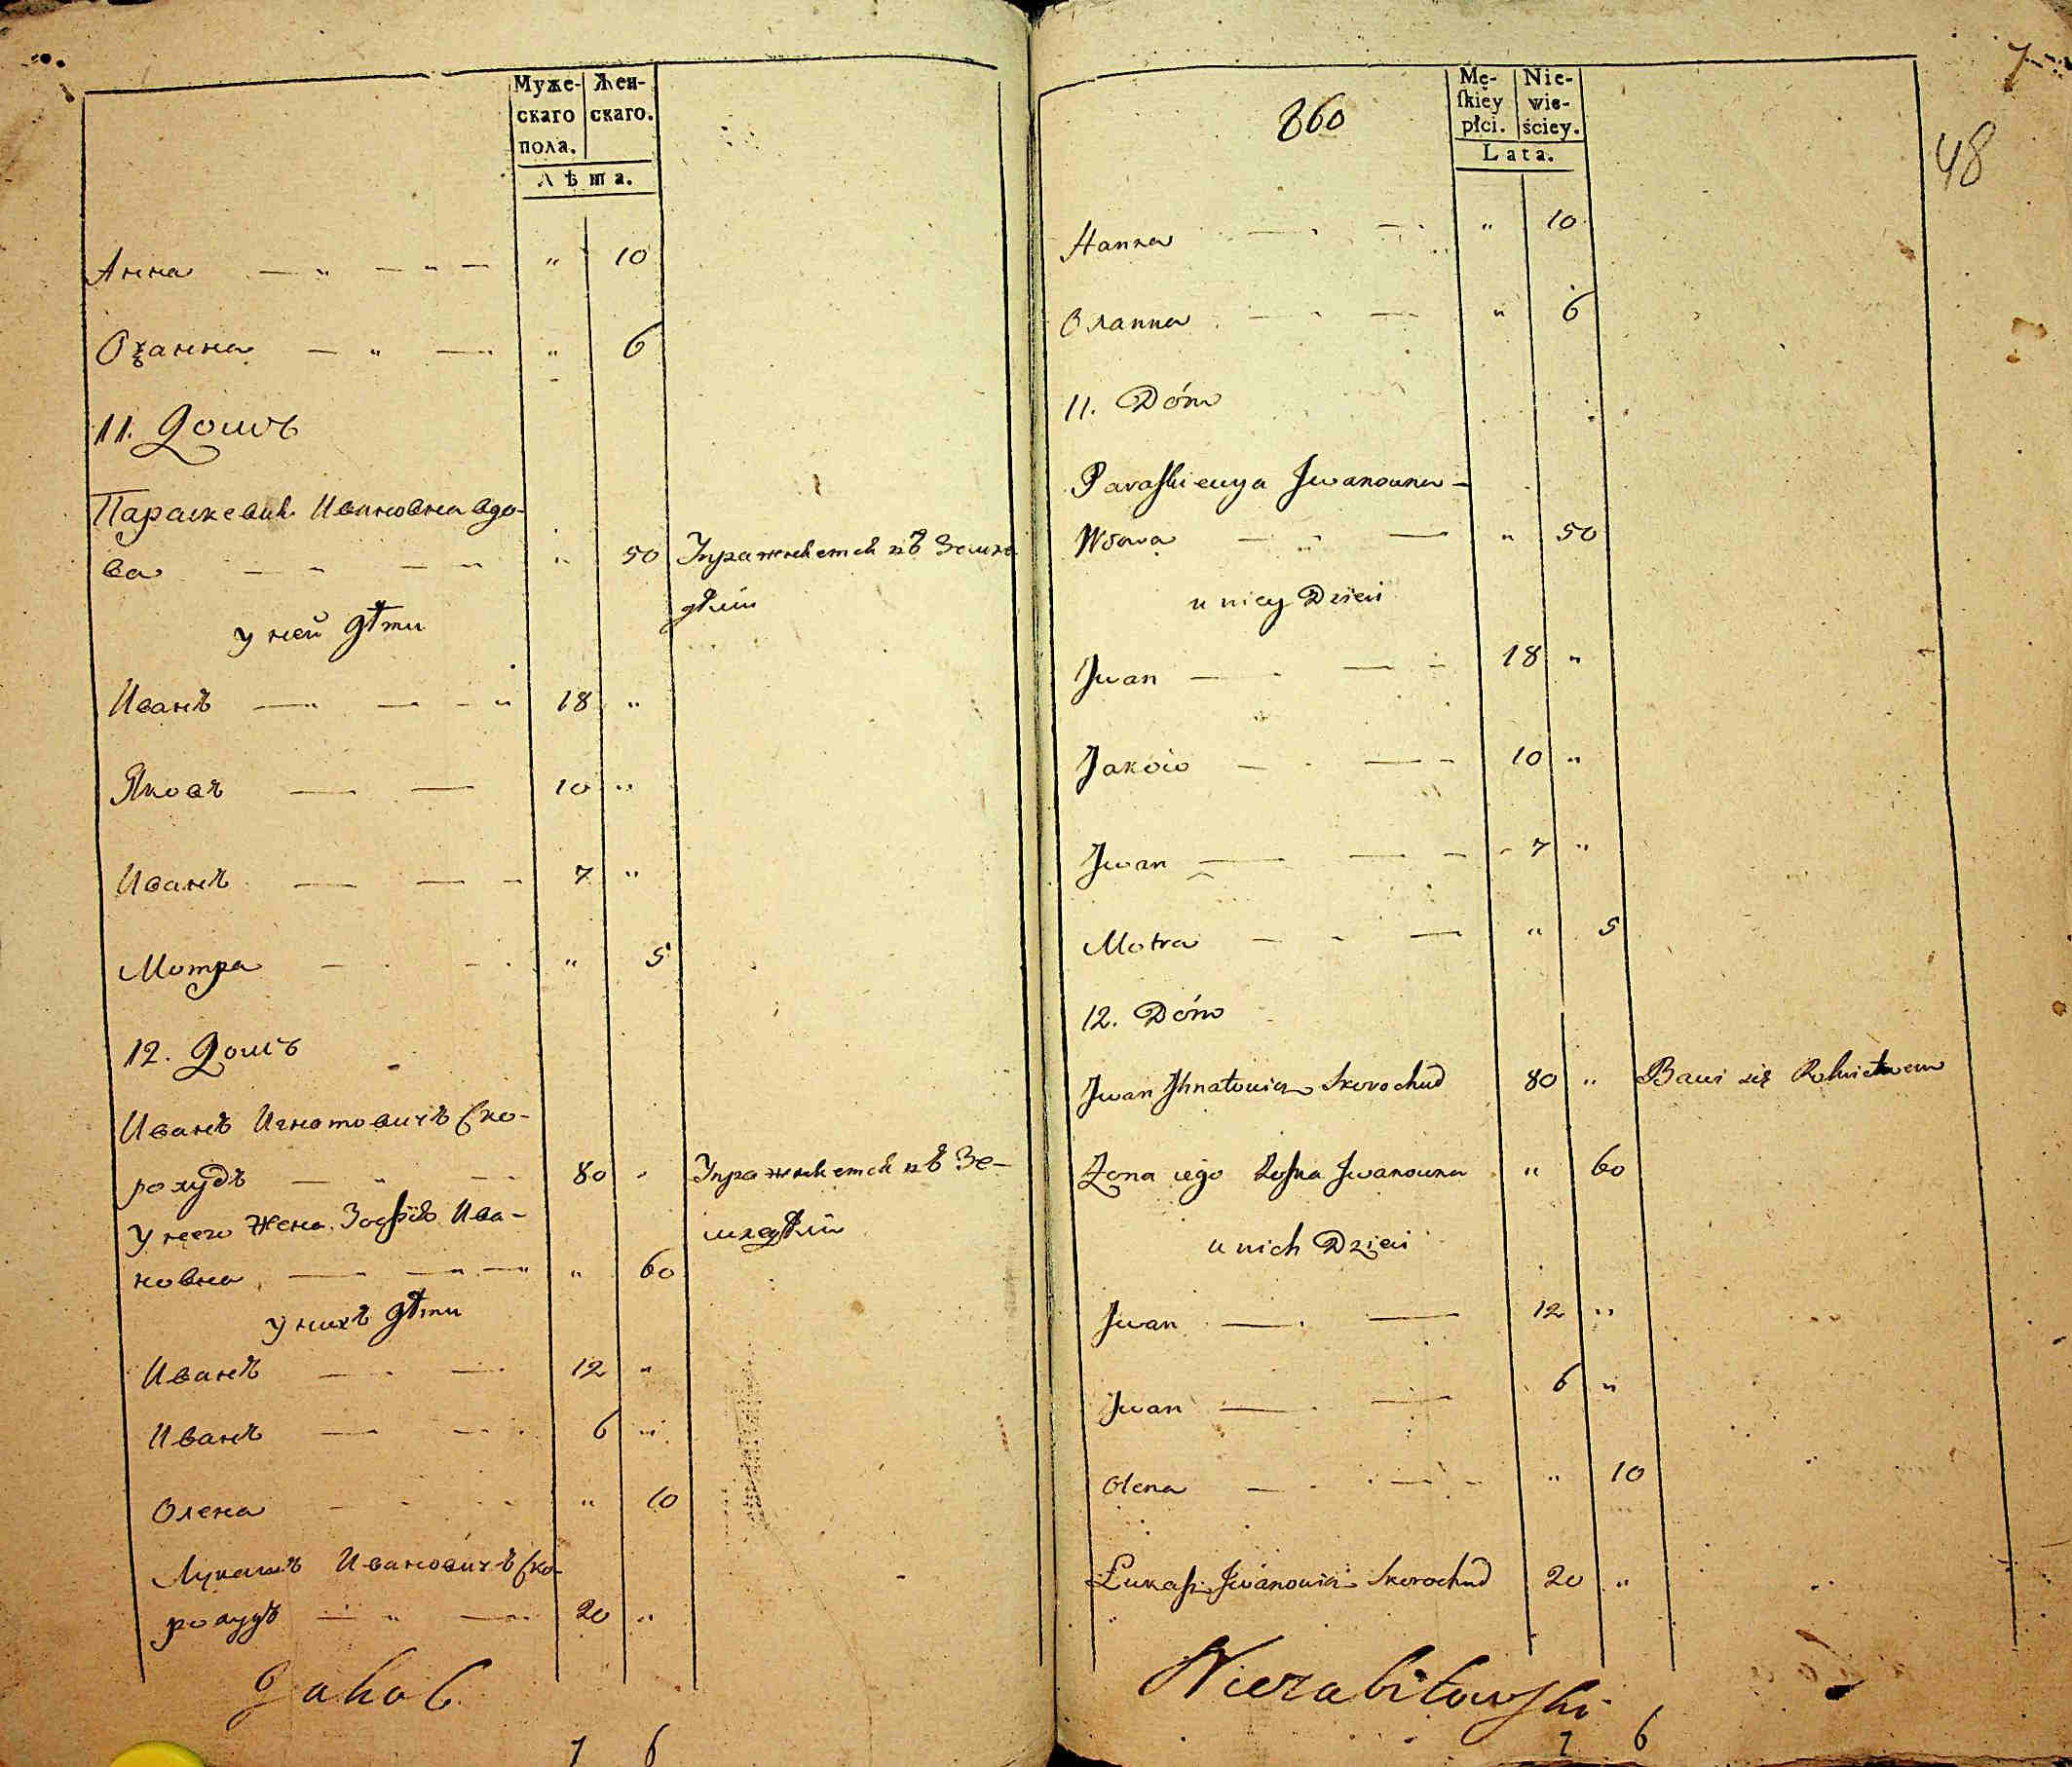 Муже-
скаго
пола.
Жен-
скаго.
Лѣта.
Анна — „ — „ — „ 10
Оханна — „ — „ „ 6
11. Домъ
Параскевия Ивановна вдо-
ва — „ — „ „ 50 Упражняется въ Земле-
дѣлiи
у ней дѣти
Иванъ — „ — „ 18 „
Яковъ — — 10 „
Иванъ — — 7 „
Мотра — — „ 5
12. Домъ
Иванъ Игнатовичъ Ско-
рохудъ — „ — 80 „ Упражняется въ Зе-
У него Жена Зофия Ива-
мледѣлiи
новна — — „ 60
у нихъ дѣти
Иванъ — — 12 „
Иванъ — — 6 „
Олена — — „ 10
Лукашъ Ивановичъ Ско-
рохудъ — „ — 20 „
Jakob
7 6
7
860
48
Mę-
ſkiey
płci.
Nie-
wie-
ściey.
Lata.
Hanna — — „ 10
Ohanna — — „ 6
11. Dóm
Paraſkiewya Jwanowna —
Wdowa — „ — „ 50
u niey Dzieci
Jwan — — 18 „
Jakow — — 10 „
Jwan — — 7 „
Motra — — „ 5
12. Dóm
Jwan Jhnatowicz Skorochud 80 „ Bawi się Rolnictwem
Żona iego Zoſia Jwanowna „ 60
u nich Dzieci
Jwan — — 12 „
Jwan — — 6 „
Olena — — „ 10
Łukaſz Jwanowicz Skorochud 20 „
Niezabitowſki
7 6